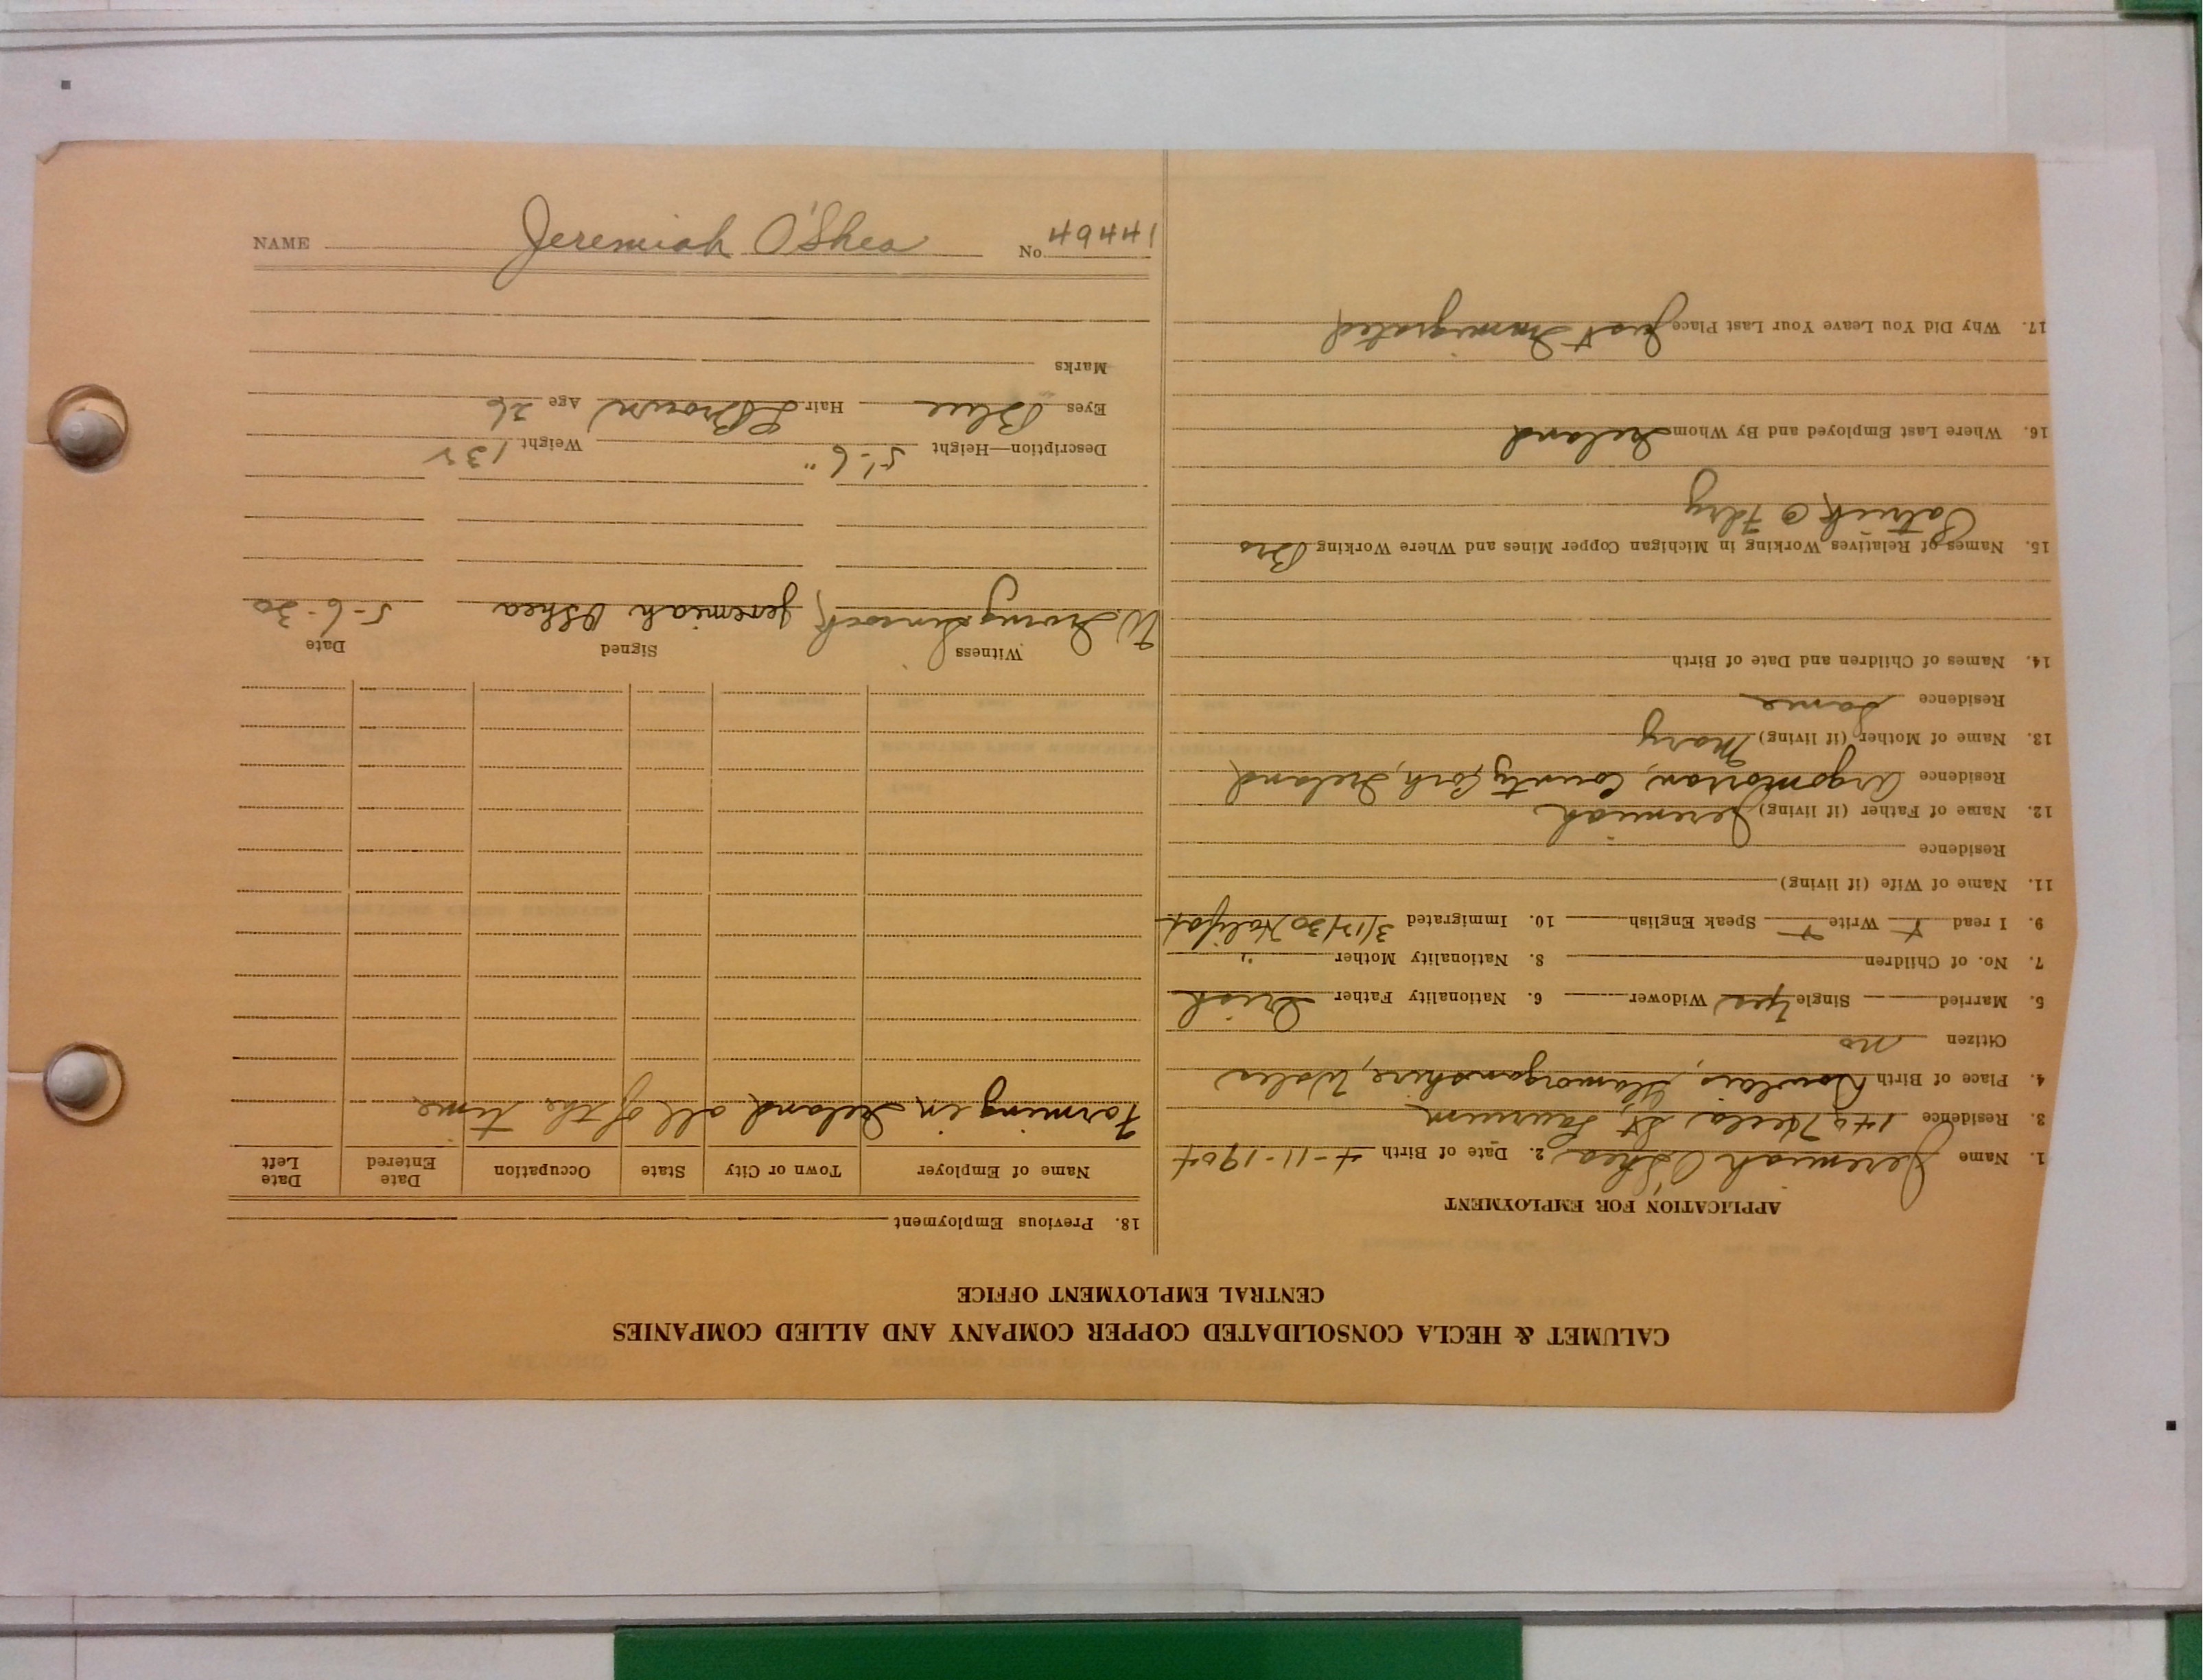 CALUMET & HECLA CONSOLIDATED COPPER COMPANY AND ALLIED COMPANIES
CENTRAL EMPLOYMENT OFFICE
APPLICATION FOR EMPLOYMENT
1. Name Jeremiah O'Shea 2. Date of Birth 4-11-1904
3. Residence 149 Hecla St Laurium
4. Place of Birth Dowlais, Glamorganshire, Wales
Citizen no
5. Married Single Yes Widower 6. Nationality Father Irish
7. No. of Children 8. Nationality Mother "
9. I read Write Speak English 10. Immigrated Halifax
11. Name of Wife (if living)
Residence
12. Name of Father (if living) Jeremiah
Residence County Cork, Ireland
13. Name of Mother (if living) Mary
Residence Same
14. Names of Children and Date of Birth
15. Names of Relatives Working in Michigan Copper Mines and Where Working Bro
Patrick @ Fdry
16. Where Last Employed and By Whom Ireland
17. Why Did You Leave Your Last Place Just Immigrated
18. Previous Employment
Name of Employer Town or City State Occupation Date Entered Date Left
Farming in Ireland all of the time
Witness Signed Date
W. Irving Jeremiah O'Shea 5-6-30
Description—Height 5'-6" Weight
Eyes Blue Hair Brown Age 26
Marks
NAME Jeremiah O'Shea No. 49441